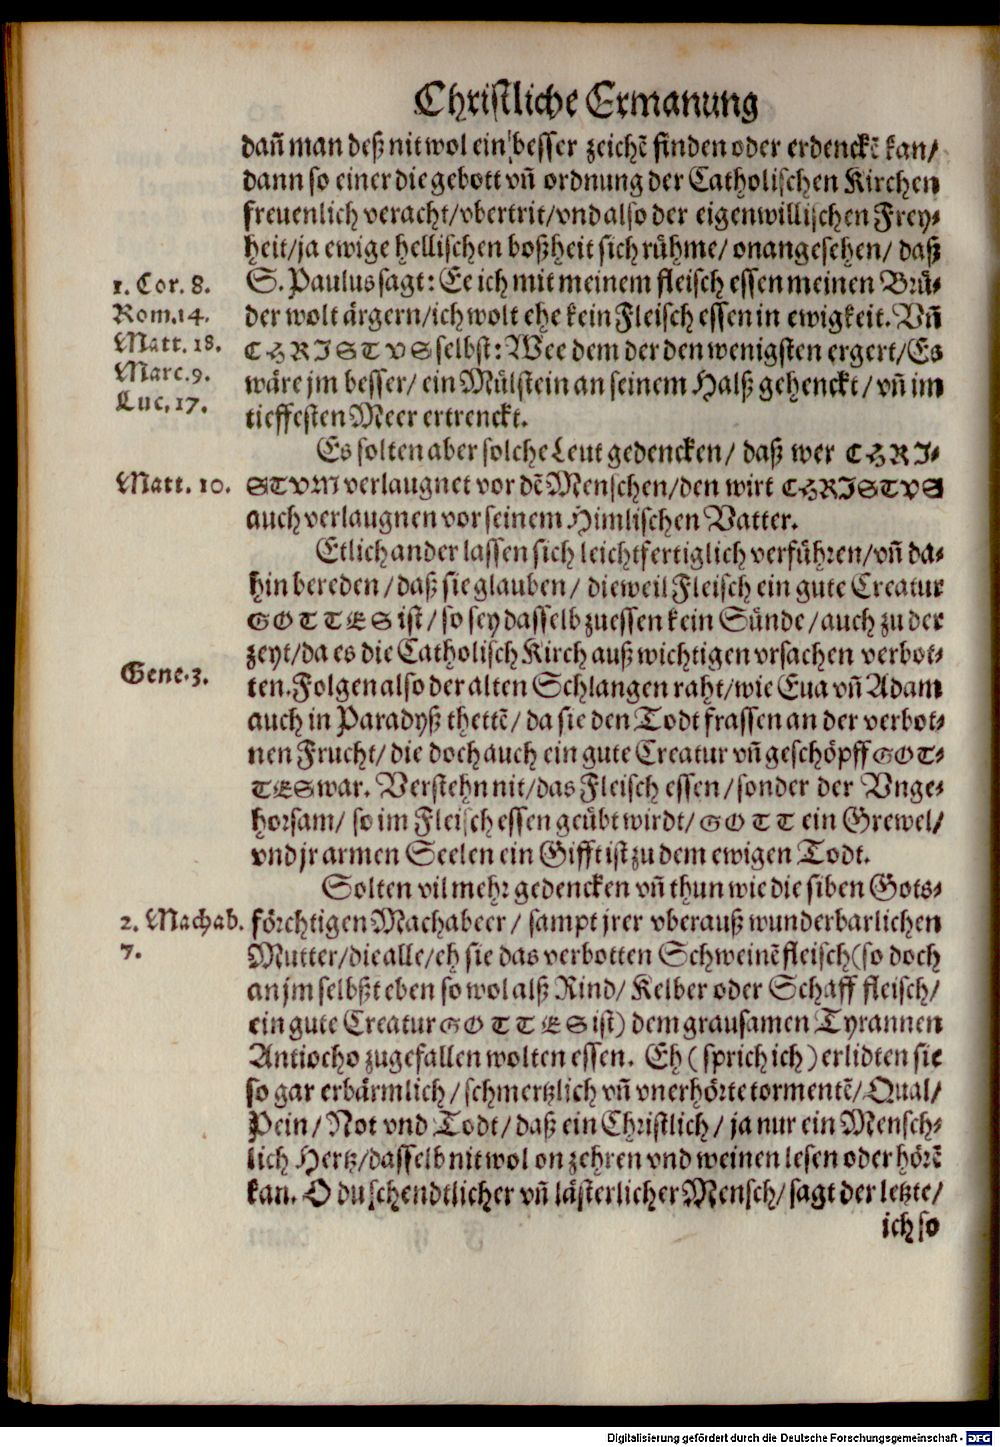 Christliche Ermanung
dañ man deß nit wol ein besser zeichē finden oder erdenckē kan/
dann so einer die gebott vñ ordnung der Catholischen Kirchen
freuenlich veracht/vbertrit/vnd also der eigenwillischen Frey-
heit/ja ewige hellischen boßheit sich rühme/ onangesehen/ daß
1. Cor. 8. S. Paulus sagt: Ee ich mit meinem fleisch essen meinen Brů-
Rom. 14. der wolt ärgern/ich wolt ehe kein Fleisch essen in ewigkeit. Vñ
Matt. 18. CHRISTVS selbst: Wee dem der den wenigsten ergert/Es
Marc. 9. wäre jm besser/ ein Mülstein an seinem Halß gehenckt/ vñ im
Luc. 17. tieffesten Meer ertrenckt.
Es solten aber solche Leut gedencken/ daß wer CHRI-
Matt. 10. STVM verlaugnet vor dē Menschen/den wirt CHRISTVS
auch verlaugnen vor seinem Himlischen Vatter.
Etlich ander lassen sich leichtfertiglich verführen/vñ da-
hin bereden/daß sie glauben/ dieweil Fleisch ein gute Creatur
GOTTES ist/ so sey dasselb zuessen kein Sünde/auch zu der
zeyt/da es die Catholisch Kirch auß wichtigen vrsachen verbot-
Gene. 3. ten. Folgen also der alten Schlangen raht/wie Eua vñ Adam
auch in Paradyß thettē/ da sie den Todt frassen an der verbot-
nen Frucht/ die doch auch ein gute Creatur vñ geschöpff GOT-
TES war. Verstehn nit/das Fleisch essen/sonder der Vnge-
horsam/ so im Fleisch essen geübt wirdt/ GOTT ein Grewel/
vnd jr armen Seelen ein Gifft ist zu dem ewigen Todt.
Solten vil mehr gedencken vñ thun wie die siben Gots-
2. Machab. förchtigen Machabeer/ sampt jrer vberauß wunderbarlichen
7. Mutter/die alle/eh sie das verbotten Schweinē fleisch (so doch
an jm selbßt eben so wol alß Rind/ Kelber oder Schaff fleisch/
ein gute Creatur GOTTES ist) dem grausamen Tyrannen
Antiocho zugefallen wolten essen. Eh (sprich ich) erlidten sie
so gar erbärmlich/schmertzlich vñ vnerhörte tormentē/Qual/
Pein/Not vnd Todt/daß ein Christlich/ ja nur ein Mensch-
lich Hertz/dasselb nit wol on zehren vnd weinen lesen oder hörē
kan. O du schendtlicher vñ lästerlicher Mensch/ sagt der letzte/
ich so
Digitalisierung gefördert durch die Deutsche Forschungsgemeinschaft - DFG